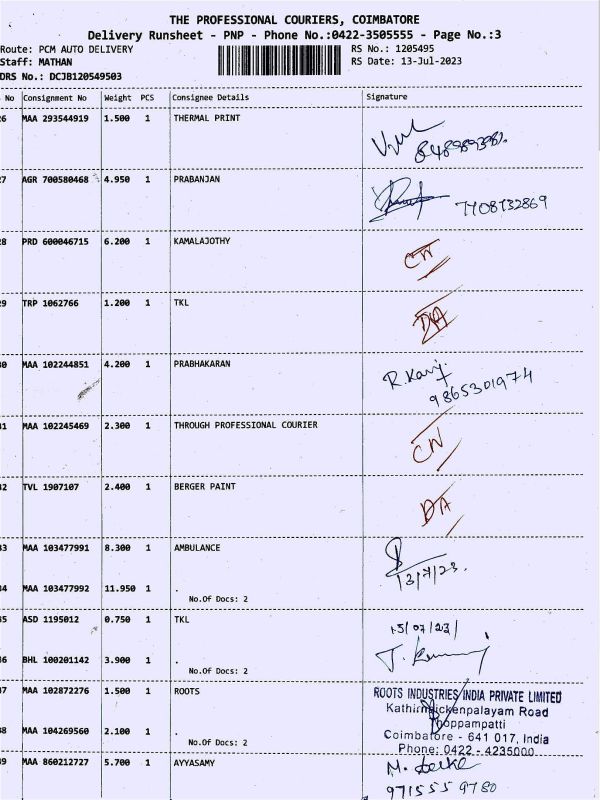 THE PROFESSIONAL COURIERS, COIMBATORE
Delivery Runsheet - PNP - Phone No.:0422-3505555 - Page No.:3
Route: PCM AUTO DELIVERY RS No.: 1205495
Staff: MATHAN RS Date: 13-Jul-2023
DRS No.: DCJB120549503
No Consignment No Weight PCS Consignee Details Signature
26 MAA 293544919 1.500 1 THERMAL PRINT
27 AGR 700580468 4.950 1 PRABANJAN
7708732869
28 PRD 600046715 6.200 1 KAMALAJOTHY CN
29 TRP 1062766 1.200 1 TKL DA
30 MAA 102244851 4.200 1 PRABHAKARAN R.
9865301974
31 MAA 102245469 2.300 1 THROUGH PROFESSIONAL COURIER CN
32 TVL 1907107 2.400 1 BERGER PAINT DA
33 MAA 103477991 8.300 1 AMBULANCE
13/7/23.
34 MAA 103477992 11.950 1 .
No.Of Docs: 2
35 ASD 1195012 0.750 1 TKL
36 BHL 100201142 3.900 1 .
No.Of Docs: 2
37 MAA 102872276 1.500 1 ROOTS ROOTS INDUSTRIES INDIA PRIVATE LIMITED
Kathirnaickenpalayam Road
Thoppampatti
38 MAA 104269560 2.100 1 . Coimbatore - 641 017, India
No.Of Docs: 2 Phone: 0422 - 4235000
39 MAA 860212727 5.700 1 AYYASAMY M.
971555 9780